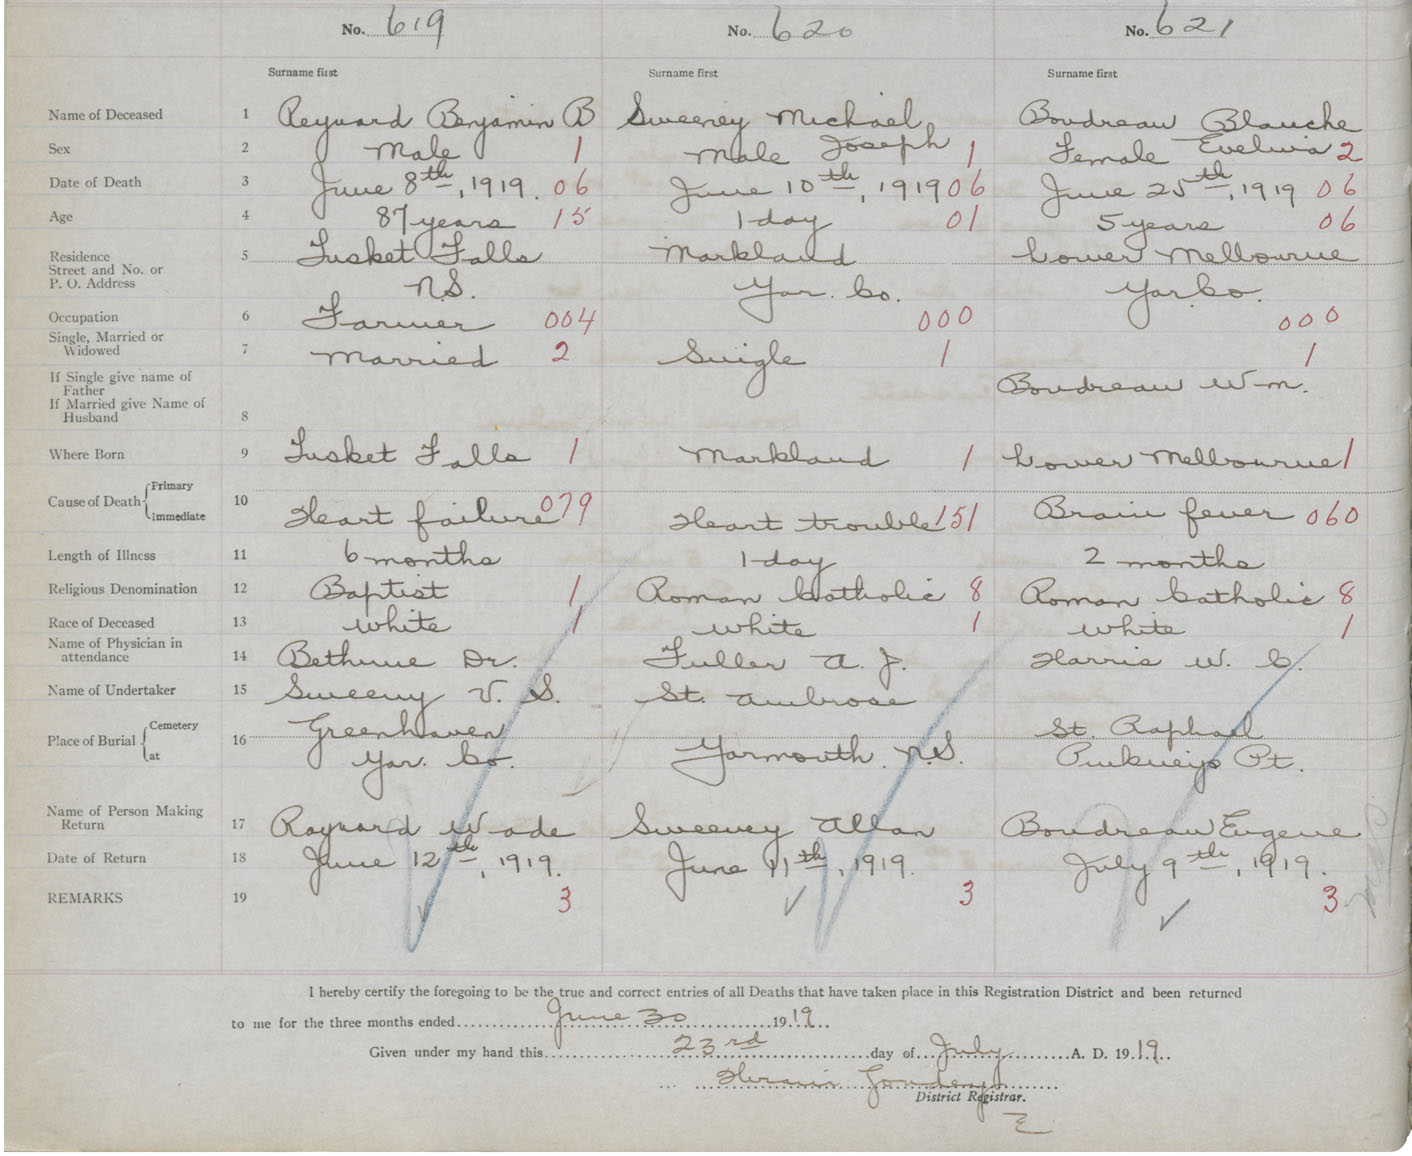 No. 619 No. 620 No. 621
Surname first Surname first Surname first
Name of Deceased 1 Reyuard Benjamin B Sweeney Michael Boudreau Blanche
Sex 2 Male 1 Male Joseph 1 Female Evelina 2
Date of Death 3 June 8th, 1919. 06 June 10th, 1919 06 June 25th, 1919 06
Age 4 87 years 15 1 day 01 5 years 06
Residence 5 Tusket Falls Markland Lower Melbourne
Street and No. or
P. O. Address N.S. Yar. Co. Yar Co.
Occupation 6 Farmer 004 000 000
Single, Married or
Widowed 7 Married 2 Single 1 1
If Single give name of
Father Boudreau Wm.
If Married give Name of
Husband 8
Where Born 9 Tusket Falls 1 Markland 1 Lower Melbourne 1
Primary
Cause of Death 10
Immediate Heart failure 079 Heart trouble 151 Brain fever 060
Length of Illness 11 6 months 1 day 2 months
Religious Denomination 12 Baptist 1 Roman Catholic 8 Roman Catholic 8
Race of Deceased 13 White 1 White 1 White 1
Name of Physician in
attendance 14 Bethune Dr. Fuller A. J. Harris W. C.
Name of Undertaker 15 Sweeny V. S. St. Ambrose
Cemetery Greenhaven St. Raphael
Place of Burial 16
at Yar. Co. Yarmouth. N.S. Pinkneys Pt.
Name of Person Making
Return 17 Raynard Wade Sweeney Allan Boudreau Eugene
Date of Return 18 June 12th, 1919. June 11th, 1919. July 9th, 1919.
REMARKS 19 3 3 3
I hereby certify the foregoing to be the true and correct entries of all Deaths that have taken place in this Registration District and been returned
to me for the three months ended June 30 1919
Given under my hand this 23rd day of July A. D. 1919
District Registrar.